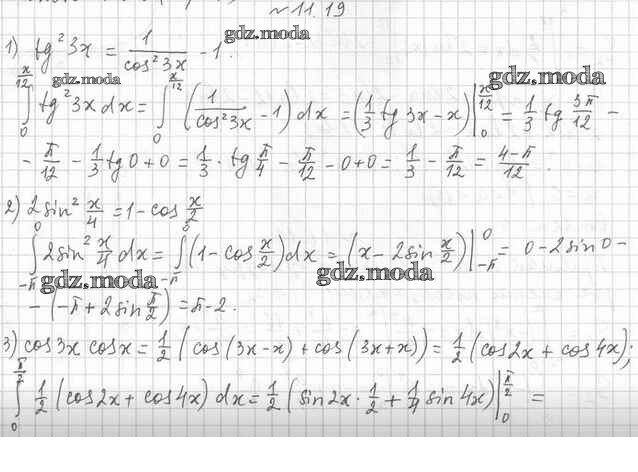 ~ 11.19
gdz.moda
1) tg²3x = 1/cos²3x - 1.
gdz.moda
gdz.moda
∫₀^(π/12) tg²3x dx = ∫₀^(π/12) (1/cos²3x - 1) dx = (1/3 tg 3x - x)|₀^(π/12) = 1/3 tg 3π/12 -
- π/12 - 1/3 tg 0 + 0 = 1/3 · tg π/4 - π/12 - 0 + 0 = 1/3 - π/12 = (4-π)/12.
2) 2sin² x/4 = 1 - cos x/2
∫_(-π)^0 2sin² x/4 dx = ∫_(-π)^0 (1 - cos x/2) dx = (x - 2sin x/2)|_(-π)^0 = 0 - 2sin 0 -
gdz.moda
gdz.moda
- (-π + 2sin π/2) = π - 2.
3) cos 3x cos x = 1/2 (cos(3x-x) + cos(3x+x)) = 1/2 (cos 2x + cos 4x);
∫₀^(π/2) 1/2 (cos 2x + cos 4x) dx = 1/2 (sin 2x · 1/2 + 1/4 sin 4x)|₀^(π/2) =